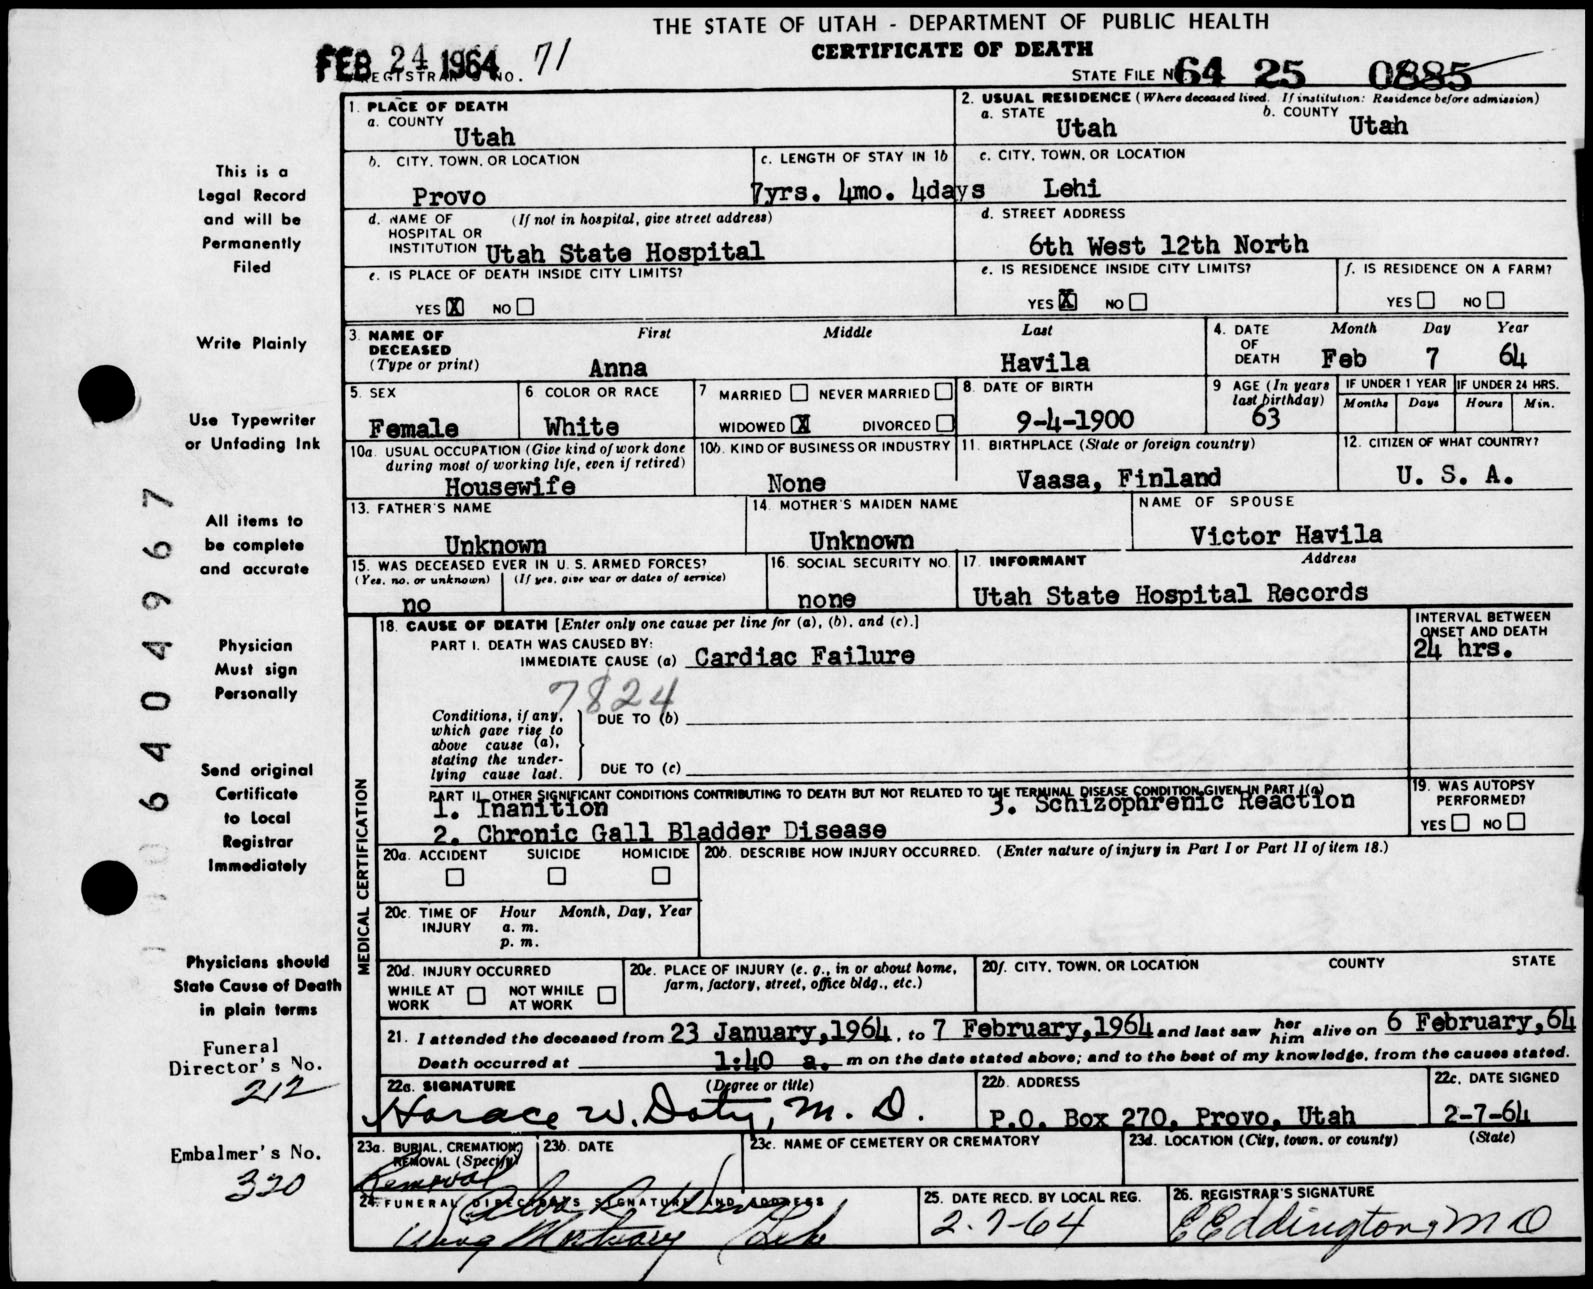 THE STATE OF UTAH - DEPARTMENT OF PUBLIC HEALTH
CERTIFICATE OF DEATH
FEB 24 1964
REGISTRAR'S NO. 71
STATE FILE NO. 64 25 0885
This is a
Legal Record
and will be
Permanently
Filed
Write Plainly
Use Typewriter
or Unfading Ink
All items to
be complete
and accurate
Physician
Must sign
Personally
Send original
Certificate
to Local
Registrar
Immediately
Physicians should
State Cause of Death
in plain terms
Funeral
Director's No.
212
Embalmer's No.
320
640 4967
1. PLACE OF DEATH
a. COUNTY
Utah
2. USUAL RESIDENCE (Where deceased lived. If institution: Residence before admission)
a. STATE
Utah
b. COUNTY
Utah
b. CITY, TOWN, OR LOCATION
Provo
c. LENGTH OF STAY IN 1b
7yrs. 4mo. 4days
c. CITY, TOWN, OR LOCATION
Lehi
d. NAME OF (If not in hospital, give street address)
HOSPITAL OR
INSTITUTION Utah State Hospital
d. STREET ADDRESS
6th West 12th North
e. IS PLACE OF DEATH INSIDE CITY LIMITS?
YES X NO
e. IS RESIDENCE INSIDE CITY LIMITS?
YES X NO
f. IS RESIDENCE ON A FARM?
YES NO
3. NAME OF DECEASED (Type or print)
First Middle Last
Anna Havila
4. DATE OF DEATH
Month Day Year
Feb 7 64
5. SEX
Female
6 COLOR OR RACE
White
7 MARRIED NEVER MARRIED
WIDOWED X DIVORCED
8. DATE OF BIRTH
9-4-1900
9 AGE (In years last birthday)
63
IF UNDER 1 YEAR
Months Days
IF UNDER 24 HRS.
Hours Min.
10a. USUAL OCCUPATION (Give kind of work done
during most of working life, even if retired)
Housewife
10b. KIND OF BUSINESS OR INDUSTRY
None
11. BIRTHPLACE (State or foreign country)
Vaasa, Finland
12. CITIZEN OF WHAT COUNTRY?
U. S. A.
13. FATHER'S NAME
Unknown
14. MOTHER'S MAIDEN NAME
Unknown
NAME OF SPOUSE
Victor Havila
15. WAS DECEASED EVER IN U. S. ARMED FORCES?
(Yes, no, or unknown) (If yes, give war or dates of service)
no
16. SOCIAL SECURITY NO.
none
17. INFORMANT Address
Utah State Hospital Records
MEDICAL CERTIFICATION
18. CAUSE OF DEATH [Enter only one cause per line for (a), (b), and (c).]
PART I. DEATH WAS CAUSED BY:
IMMEDIATE CAUSE (a) Cardiac Failure
INTERVAL BETWEEN
ONSET AND DEATH
24 hrs.
7824
Conditions, if any,
which gave rise to
above cause (a),
stating the under-
lying cause last.
DUE TO (b)
DUE TO (c)
PART II. OTHER SIGNIFICANT CONDITIONS CONTRIBUTING TO DEATH BUT NOT RELATED TO THE TERMINAL DISEASE CONDITION GIVEN IN PART I(a)
1. Inanition 3. Schizophrenic Reaction
2. Chronic Gall Bladder Disease
19. WAS AUTOPSY
PERFORMED?
YES NO
20a. ACCIDENT SUICIDE HOMICIDE
20b. DESCRIBE HOW INJURY OCCURRED. (Enter nature of injury in Part I or Part II of item 18.)
20c. TIME OF INJURY
Hour Month, Day, Year
a. m.
p. m.
20d. INJURY OCCURRED
WHILE AT WORK NOT WHILE AT WORK
20e. PLACE OF INJURY (e. g., in or about home,
farm, factory, street, office bldg., etc.)
20f. CITY, TOWN, OR LOCATION COUNTY STATE
21. I attended the deceased from 23 January,1964, to 7 February,1964 and last saw her him alive on 6 February,64
Death occurred at 1:40 a. m on the date stated above; and to the best of my knowledge, from the causes stated.
22a. SIGNATURE (Degree or title)
Horace W. Doty, M. D.
22b. ADDRESS
P.O. Box 270, Provo, Utah
22c. DATE SIGNED
2-7-64
23a. BURIAL, CREMATION,
REMOVAL (Specify)
Removal
23b. DATE
23c. NAME OF CEMETERY OR CREMATORY
23d. LOCATION (City, town, or county) (State)
24. FUNERAL DIRECTOR'S SIGNATURE AND ADDRESS
Wing Mortuary Lehi
25. DATE RECD. BY LOCAL REG.
2-7-64
26. REGISTRAR'S SIGNATURE
E Eddington, M D